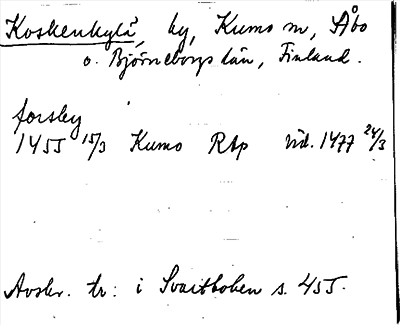 Koskenkylä, by, Kumo sn, Åbo
o. Björneborgs län, Finland.
forsby
1455 15/3 Kumo RAp vid. 1477 24/3
Avskr. tr: i Svartboken s. 455.